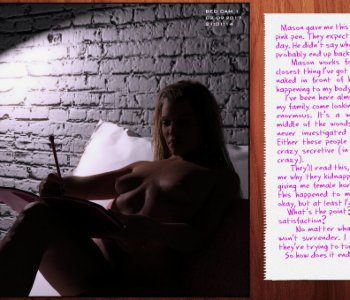 BED CAM 1
Mason gave me this
pink pen. They expect
day. He didn't say wh
probably end up back
Mason works fo
closest thing I've got
naked in front of
happening to my body
I've been here alm
my family come lookin
enormous. It's a w
middle of the woods
never investigated
Either these people
crazy secretive (in
crazy).
They'll read this,
me why they kidnapp
giving me female hor
this happened to m
okay, but at least I
What's the point
satisfaction?
No matter wha
won't surrender. I
they're trying to tu
So how does it end